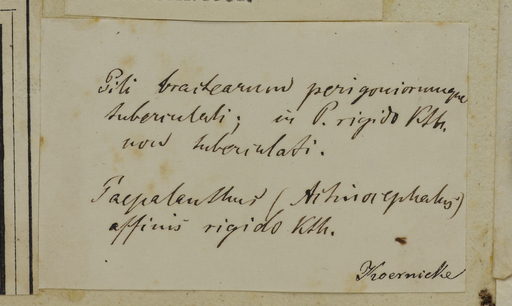 Pili bractearum perigoniorumque
tuberculati; in P. rigido Kth.
non tuberculati.
Paepalanthus (Actinocephalus)
affinis rigido Kth.
Koernicke